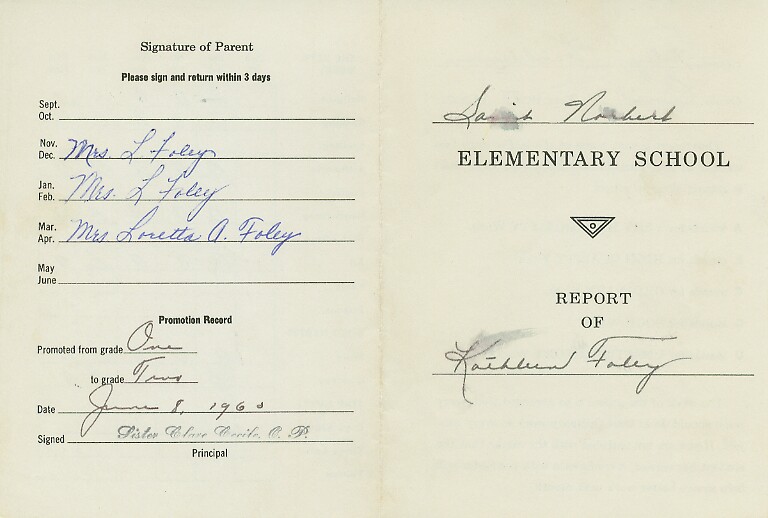 Signature of Parent
Please sign and return within 3 days
Sept.
Oct.
Nov.
Dec. Mrs. L Foley
Jan.
Feb. Mrs. L Foley
Mar.
Apr. Mrs Loretta A. Foley
May
June
Promotion Record
Promoted from grade One
to grade Two
Date June 8, 1960
Signed Sister Clare Cecile, O. P.
Principal
Saint Norbert
ELEMENTARY SCHOOL
REPORT
OF
Kathleen Foley